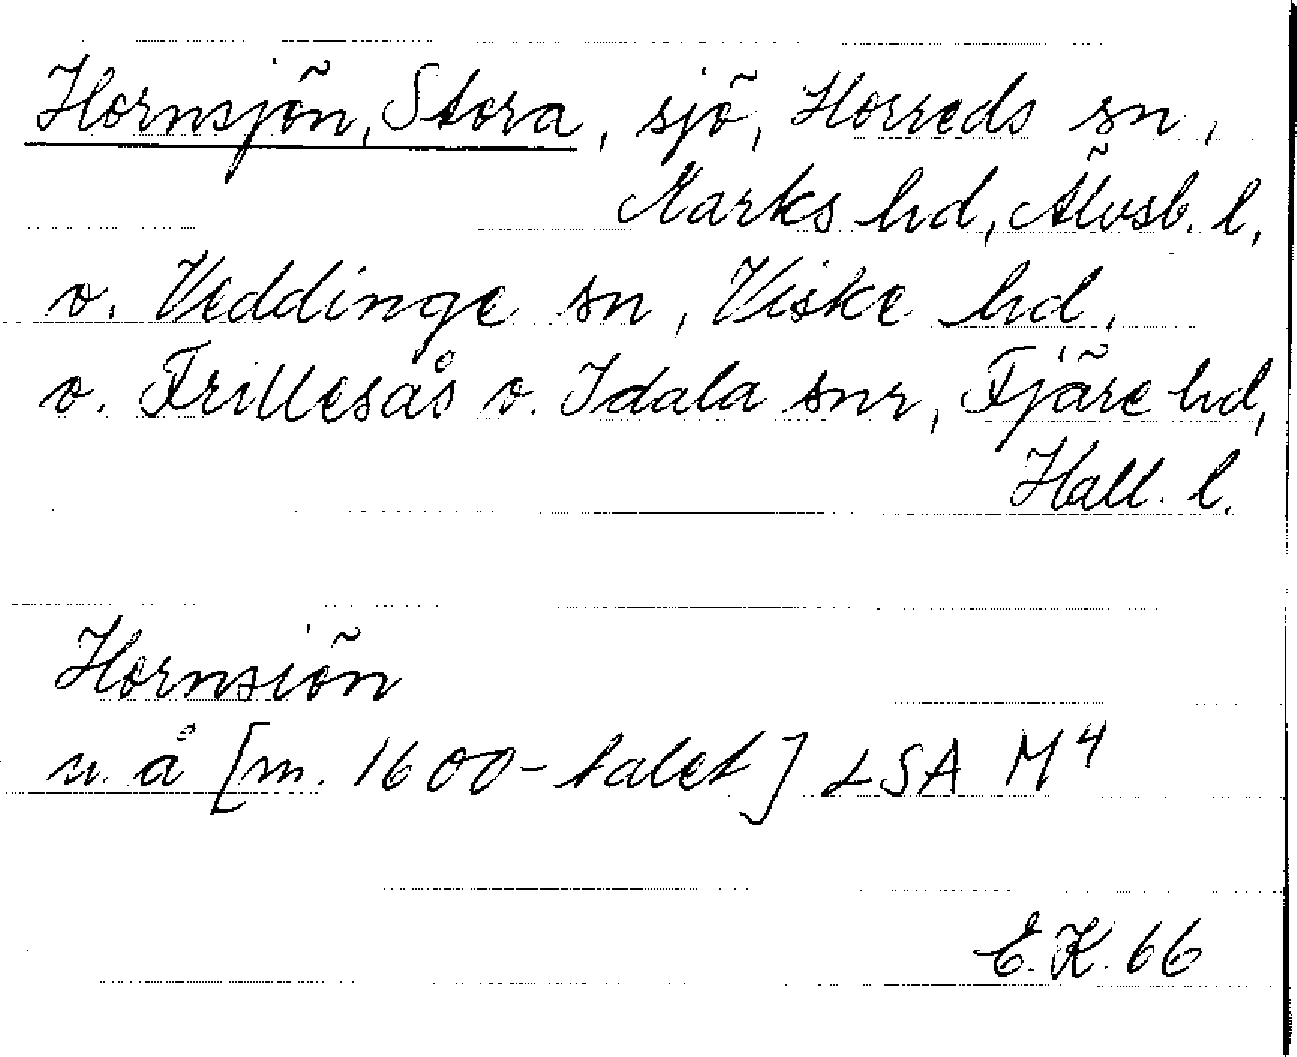 Hornsjön, Stora, sjö, Horreds sn,
Marks hd, Älvsb. l,
o. Veddinge sn, Viske hd,
o. Frillesås o. Idala snr, Fjäre hd,
Hall. l.
Hornsiön
u. å [m. 1600-talet] LSA M4
E.K. 66